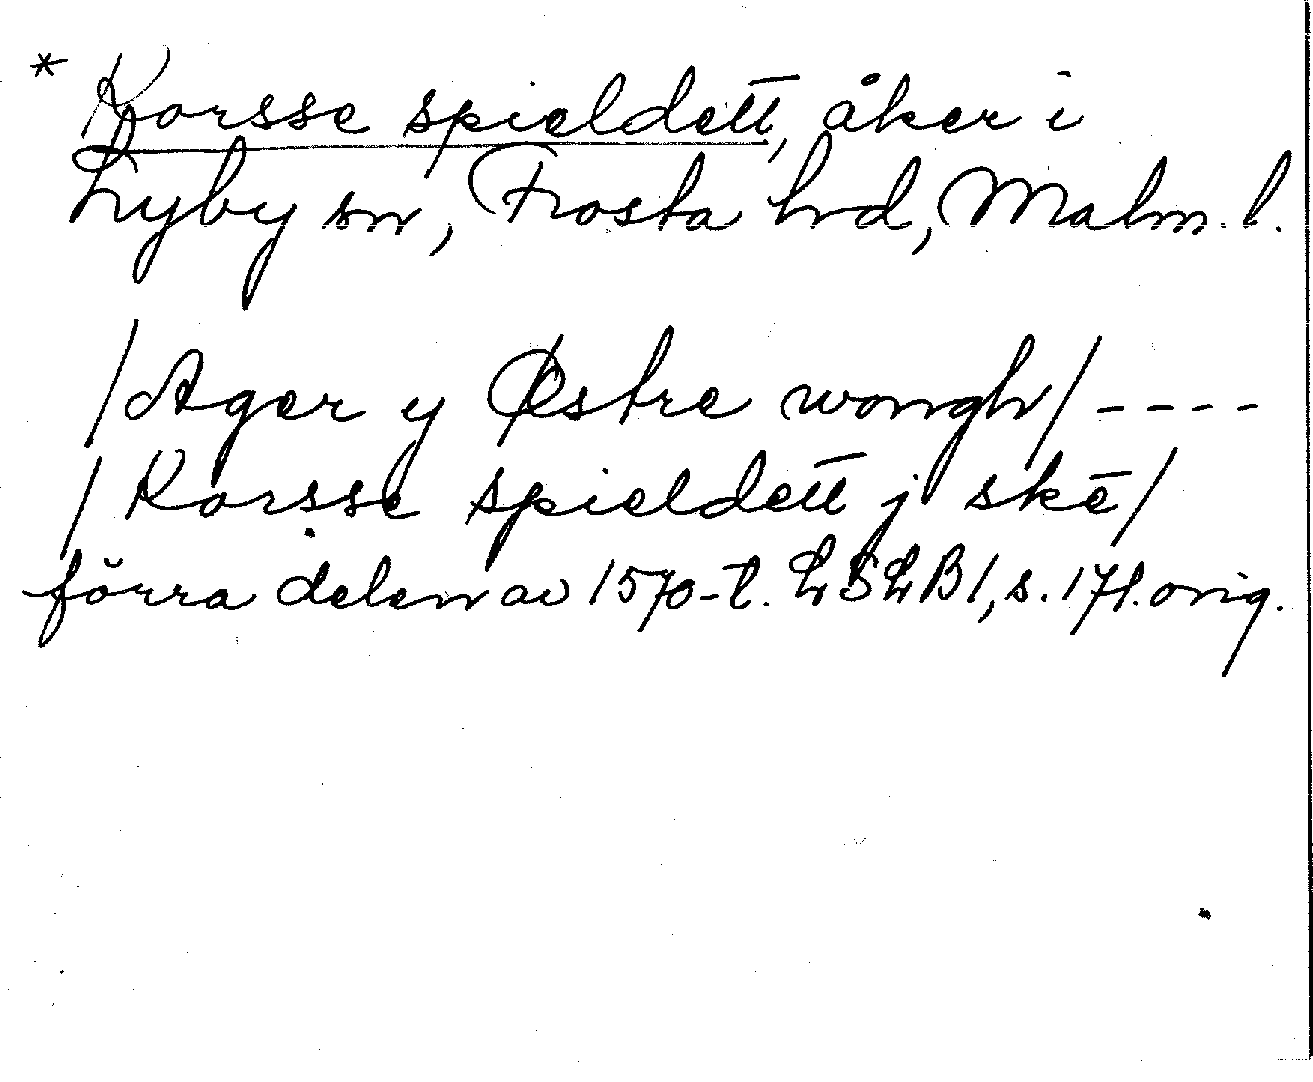 * Korsse spieldett, åker i
Lyby sn, Frosta hrd, Malm. l.
/Ager y Østre wongh/ ----
/Korsse spieldett j skē/
förra delen av 1570-t. LSLB 1, s. 171. orig.